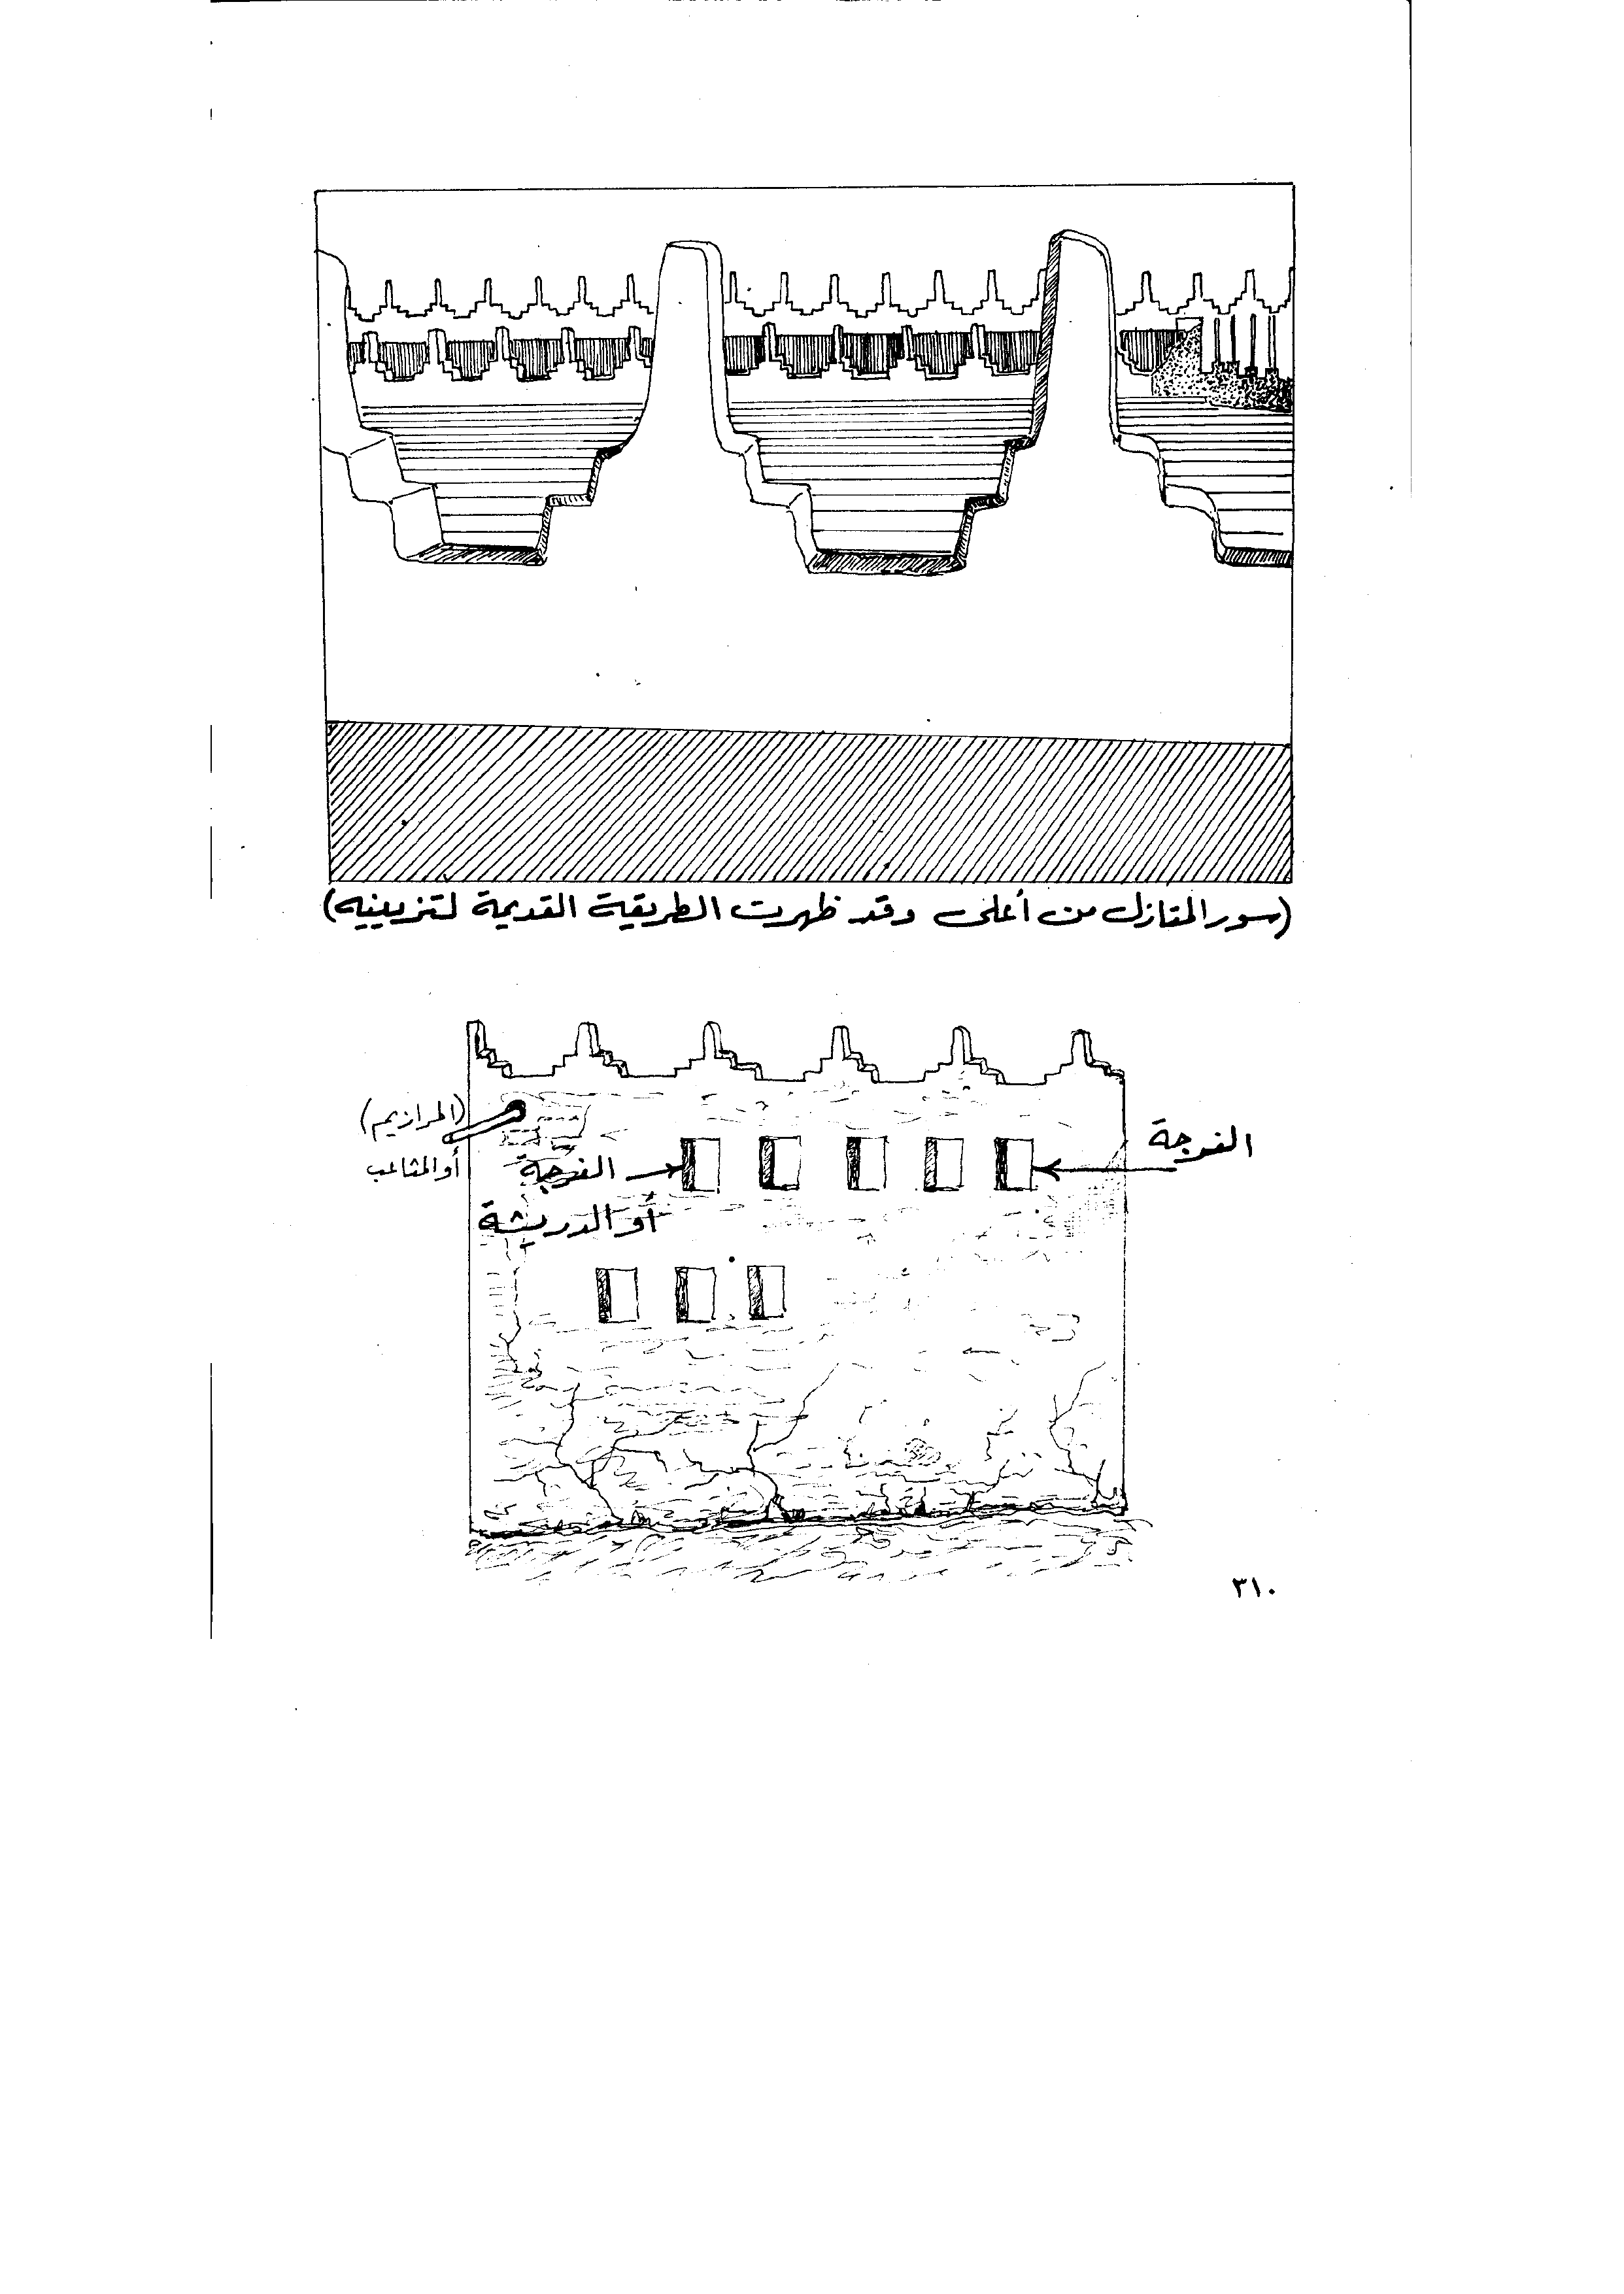 (سور المنازل من أعلى وقد ظهرت الطريقة القديمة لتزيينه)
(المرازيم)
أو المثاعب
الفرجة
الفرجة
أو الدريشة
٣١٠